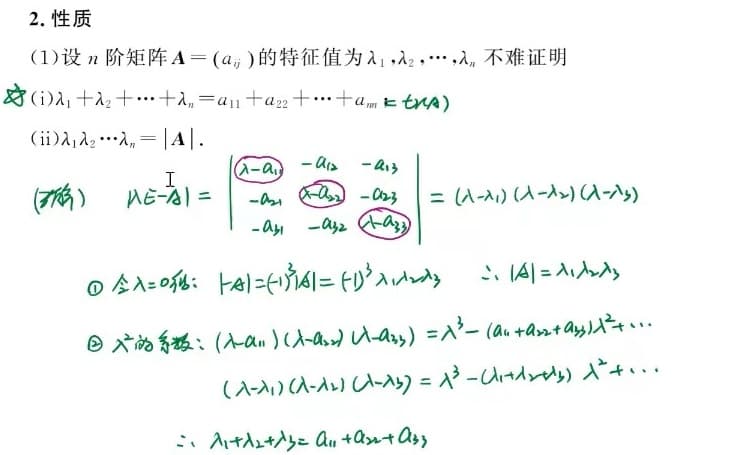 2. 性质
(1)设 n 阶矩阵 A=(aᵢⱼ)的特征值为λ₁,λ₂,⋯,λₙ 不难证明
☆(i)λ₁+λ₂+⋯+λₙ=a₁₁+a₂₂+⋯+aₙₙ = tr(A)
(ii)λ₁λ₂⋯λₙ=|A|.
|λE-A| = | λ-a₁₁ -a₁₂ -a₁₃ |
| -a₂₁ λ-a₂₂ -a₂₃ | = (λ-λ₁)(λ-λ₂)(λ-λ₃)
| -a₃₁ -a₃₂ λ-a₃₃ |
① 令λ=0: |-A|=(-1)³|A|=(-1)³λ₁λ₂λ₃ ∴ |A|=λ₁λ₂λ₃
② λ²的系数: (λ-a₁₁)(λ-a₂₂)(λ-a₃₃)=λ³-(a₁₁+a₂₂+a₃₃)λ²+⋯
(λ-λ₁)(λ-λ₂)(λ-λ₃)=λ³-(λ₁+λ₂+λ₃)λ²+⋯
∴ λ₁+λ₂+λ₃=a₁₁+a₂₂+a₃₃